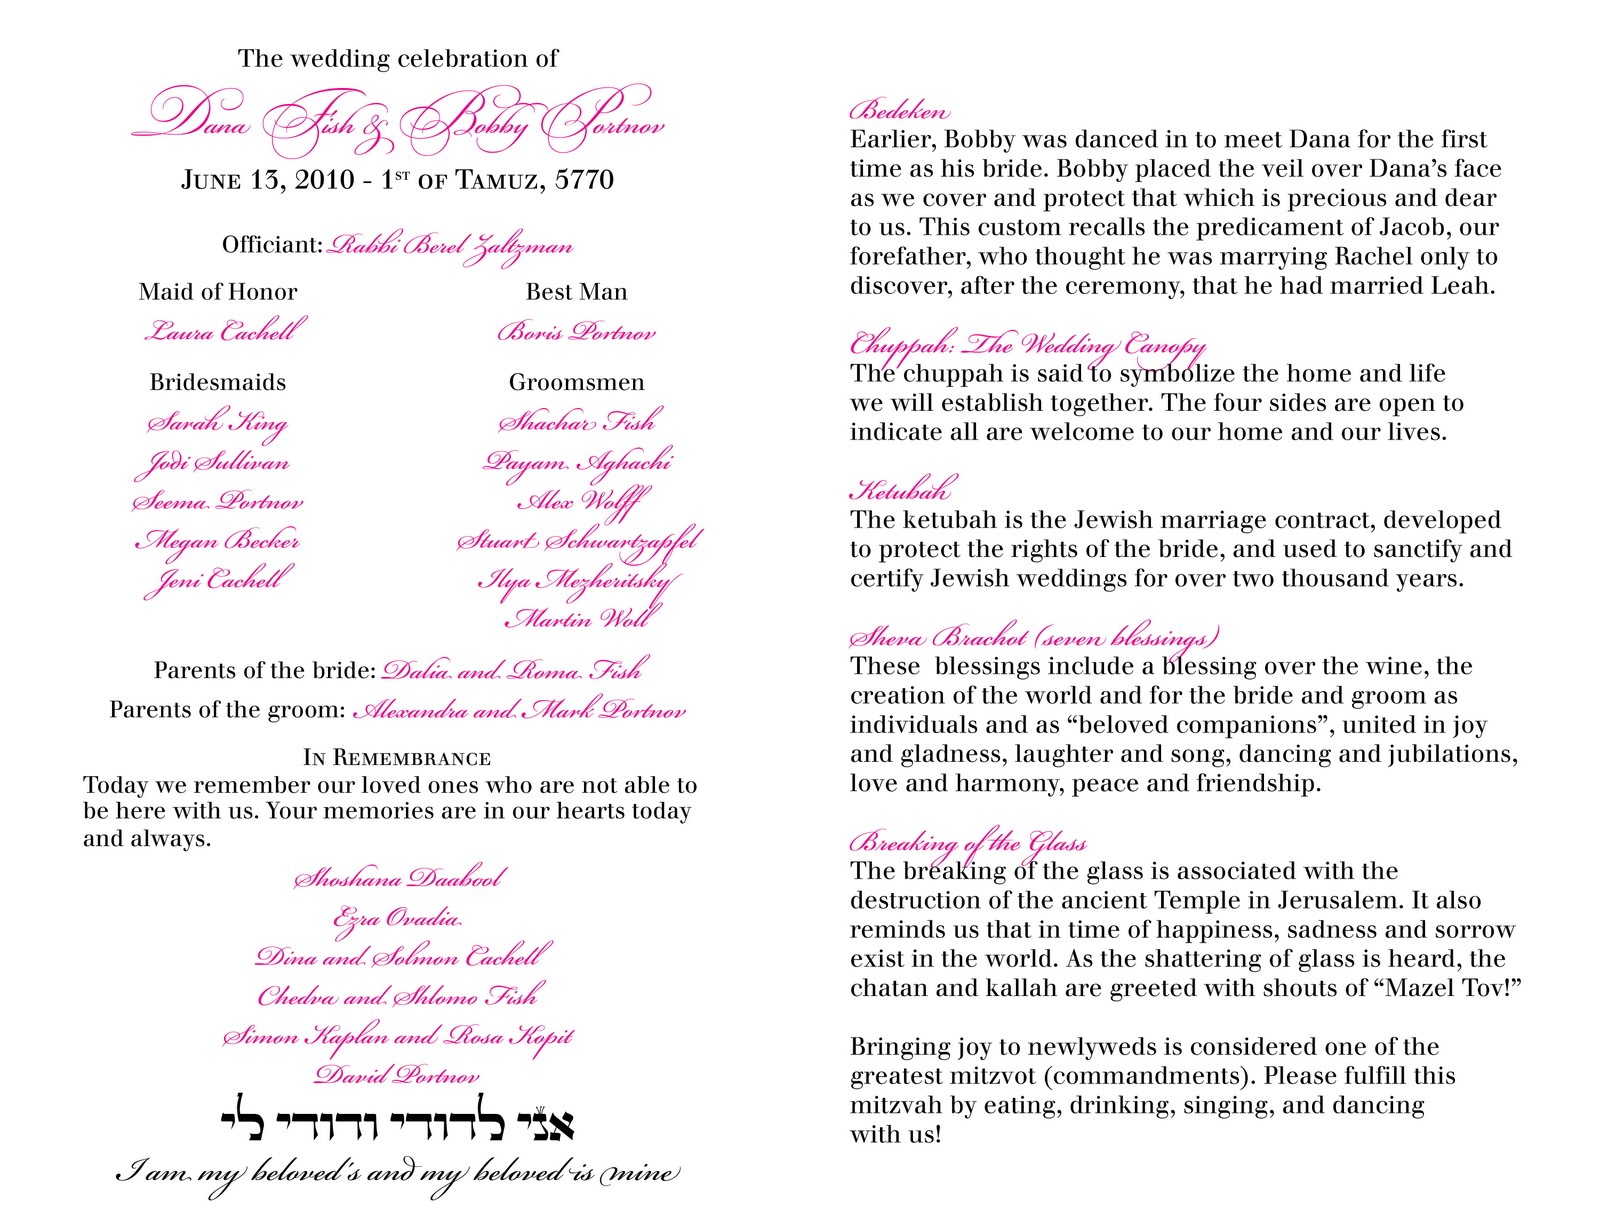 The wedding celebration of
Dana Fish & Bobby Portnov
June 13, 2010 - 1st of Tamuz, 5770
Officiant: Rabbi Berel Zaltzman
Maid of Honor
Laura Cachell
Bridesmaids
Sarah King
Jodi Sullivan
Seema Portnov
Megan Becker
Jeni Cachell
Best Man
Boris Portnov
Groomsmen
Shachar Fish
Payam Aghachi
Alex Wolff
Stuart Schwartzapfel
Ilya Mezheritsky
Martin Woll
Parents of the bride: Dalia and Roma Fish
Parents of the groom: Alexandra and Mark Portnov
In Remembrance
Today we remember our loved ones who are not able to
be here with us. Your memories are in our hearts today
and always.
Shoshana Daabool
Ezra Ovadia
Dina and Solmon Cachell
Chedva and Shlomo Fish
Simon Kaplan and Rosa Kopit
David Portnov
אני לדודי ודודי לי
I am my beloved's and my beloved is mine
Bedeken
Earlier, Bobby was danced in to meet Dana for the first
time as his bride. Bobby placed the veil over Dana’s face
as we cover and protect that which is precious and dear
to us. This custom recalls the predicament of Jacob, our
forefather, who thought he was marrying Rachel only to
discover, after the ceremony, that he had married Leah.
Chuppah: The Wedding Canopy
The chuppah is said to symbolize the home and life
we will establish together. The four sides are open to
indicate all are welcome to our home and our lives.
Ketubah
The ketubah is the Jewish marriage contract, developed
to protect the rights of the bride, and used to sanctify and
certify Jewish weddings for over two thousand years.
Sheva Brachot (seven blessings)
These  blessings include a blessing over the wine, the
creation of the world and for the bride and groom as
individuals and as “beloved companions”, united in joy
and gladness, laughter and song, dancing and jubilations,
love and harmony, peace and friendship.
Breaking of the Glass
The breaking of the glass is associated with the
destruction of the ancient Temple in Jerusalem. It also
reminds us that in time of happiness, sadness and sorrow
exist in the world. As the shattering of glass is heard, the
chatan and kallah are greeted with shouts of “Mazel Tov!”
Bringing joy to newlyweds is considered one of the
greatest mitzvot (commandments). Please fulfill this
mitzvah by eating, drinking, singing, and dancing
with us!